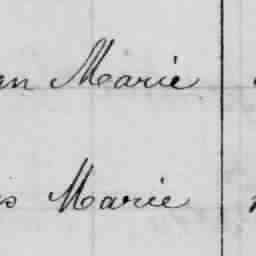 an Marie
is Marie